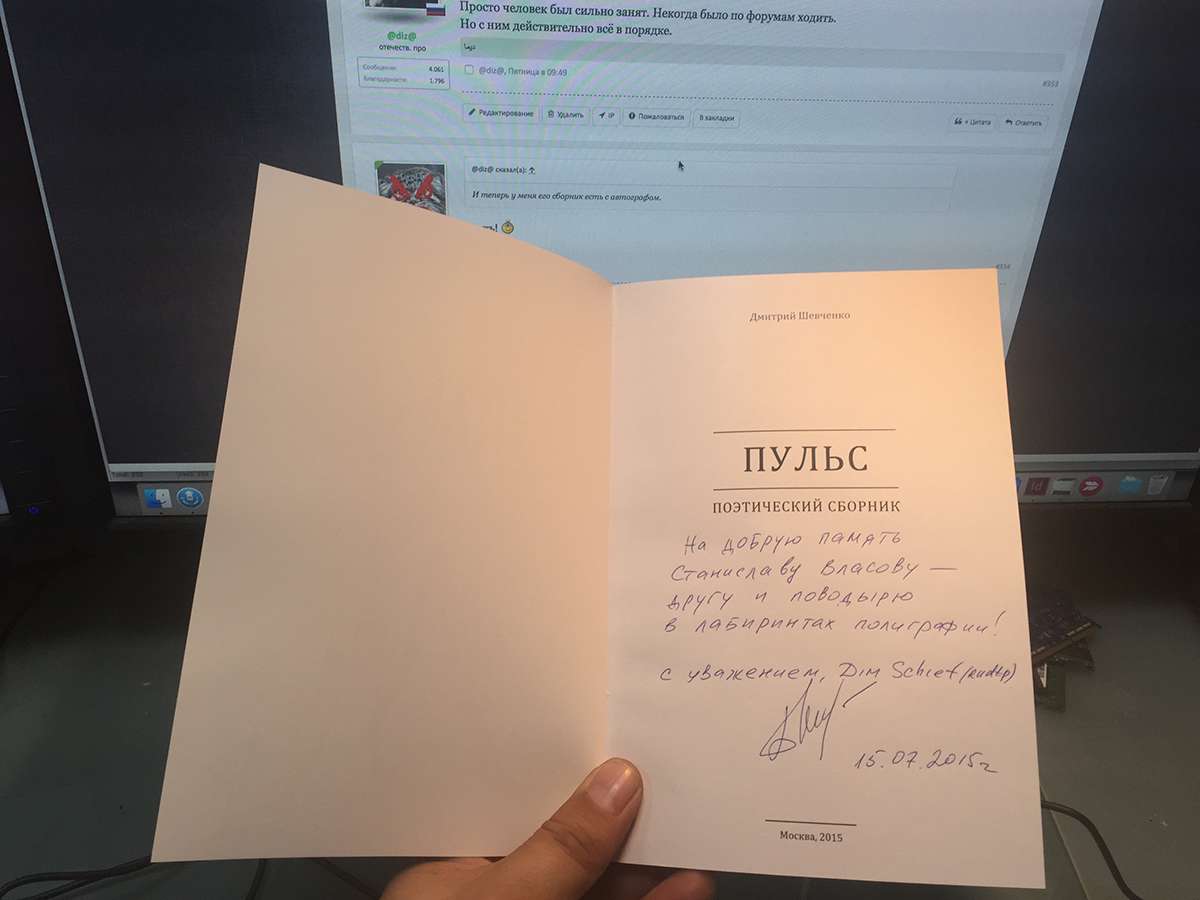 Просто человек был сильно занят. Некогда было по форумам ходить.
Но с ним действительно всё в порядке.
@diz@
отечеств. про
Сообщения: 4.061
Благодарности: 1.796
@diz@, Пятница в 09:49
#353
Редактирование Удалить IP Пожаловаться В закладки
+ Цитата Ответить
@diz@ сказал(а): ↑
И теперь у меня его сборник есть с автографом.
#354
Дмитрий Шевченко
ПУЛЬС
ПОЭТИЧЕСКИЙ СБОРНИК
На добрую память
Станиславу Власову —
другу и поводырю
в лабиринтах полиграфии!
С уважением, Dim Schief (rudtp)
15.07.2015г
Москва, 2015
Id